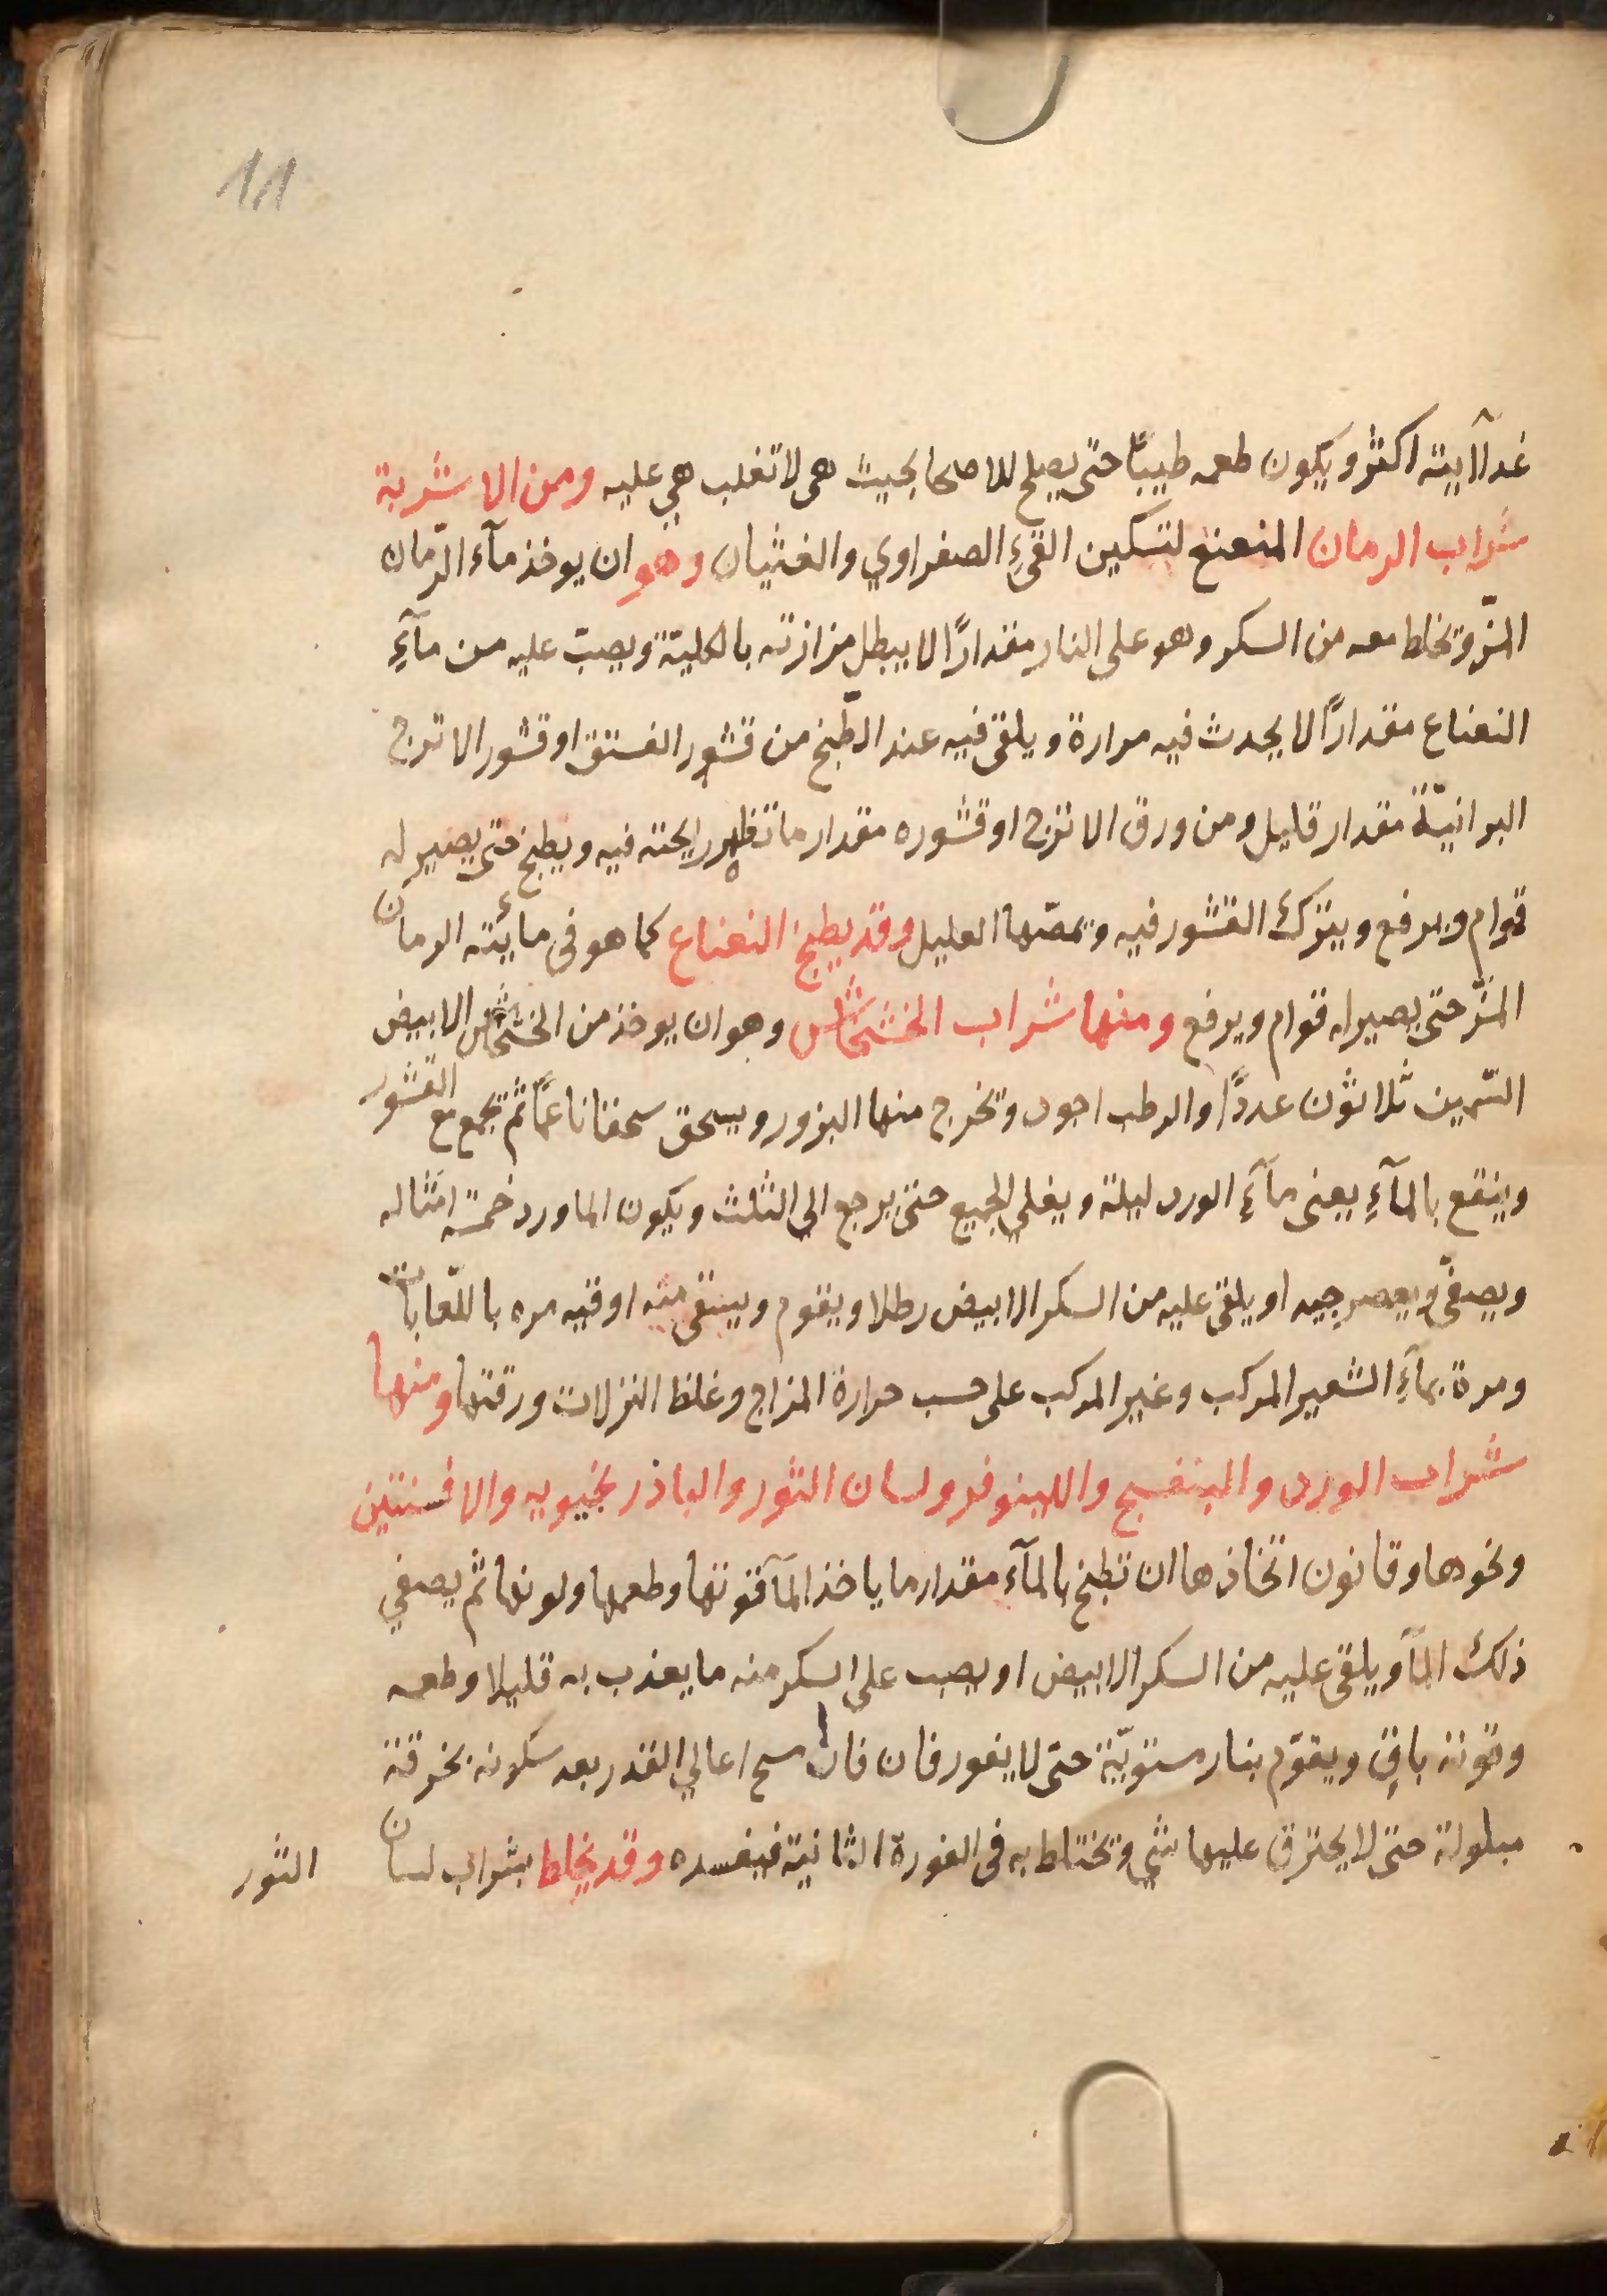 11
غدآئيته اكثر ويكون طعمه طيبًا حتى يصلح للاصحا بحيث هى لا تغلب هي عليه ومن الاشربة
شراب الرمان المنعنع لتسكين القيءِ الصفراوي والغثيان وهو ان يوخذ مآء الرّمان
المزّ ويخلط معه من السكر وهو على النار مقدارًا لا يبطل مزازته بالكليّة ويصبّ عليه من مآءِ
النعناع مقدارًا لا يحدث فيه مرارة ويلقى فيه عند الطّبخ من قشور الفستق او قشور الاترج
البرانيّة مقدار قليل ومن ورق الاترج او قشوره مقدار ما تظهر رايحته فيه ويطبخ حتى يصير له
قوام ويرفع ويترك القشور فيه ويمصّها العليل وقد يطبخ النعناع كما هو فى مائيته الرمان
المزّ حتى يصير له قوام ويرفع ومنها شراب الخشخاش وهو ان يوخذ من الخشخاش الابيض
السّمين ثلاثون عددًا والرطب اجود وتخرج منها البزور ويسحق سحقا ناعمًا ثم يجمع مع القشور
وينقع بالمآءِ يعنى مآءِ الورد ليلة ويغلي الجميع حتى يرجع الى الثلث ويكون الماورد خمسة امثاله
ويصفّى ويعصر جيدا ويلقى عليه من السكر الابيض رطلا ويقوم ويسقى منه اوقيه مره باللّعابات
ومرة بمآءِ الشعير المركب وغير المركب على حسب حرارة المزاج وغلظ النزلات ورقتها ومنها
شراب الورد والبنفسج واللينوفر ولسان الثور والباذرنجبويه والافسنتين
ونحوها وقانون اتخاذها ان تطبخ بالمآء مقدار ما ياخذ المآ قوتها وطعمها ولونها ثم يصفي
ذلك المآ ويلقى عليه من السكر الابيض او يصب على السكر منه ما يعذب به قليلا وطعمه
وقوته باقٍ ويقوّم بنار مستويّة حتى لا يفور فان فار مسح اعالي القدر بعد سكونه بخرقة
مبلولة حتى لا يحترق عليها شي وتختلط به فى الفورة الثانية فيفسده وقد يخلط بشراب لسان
الثور